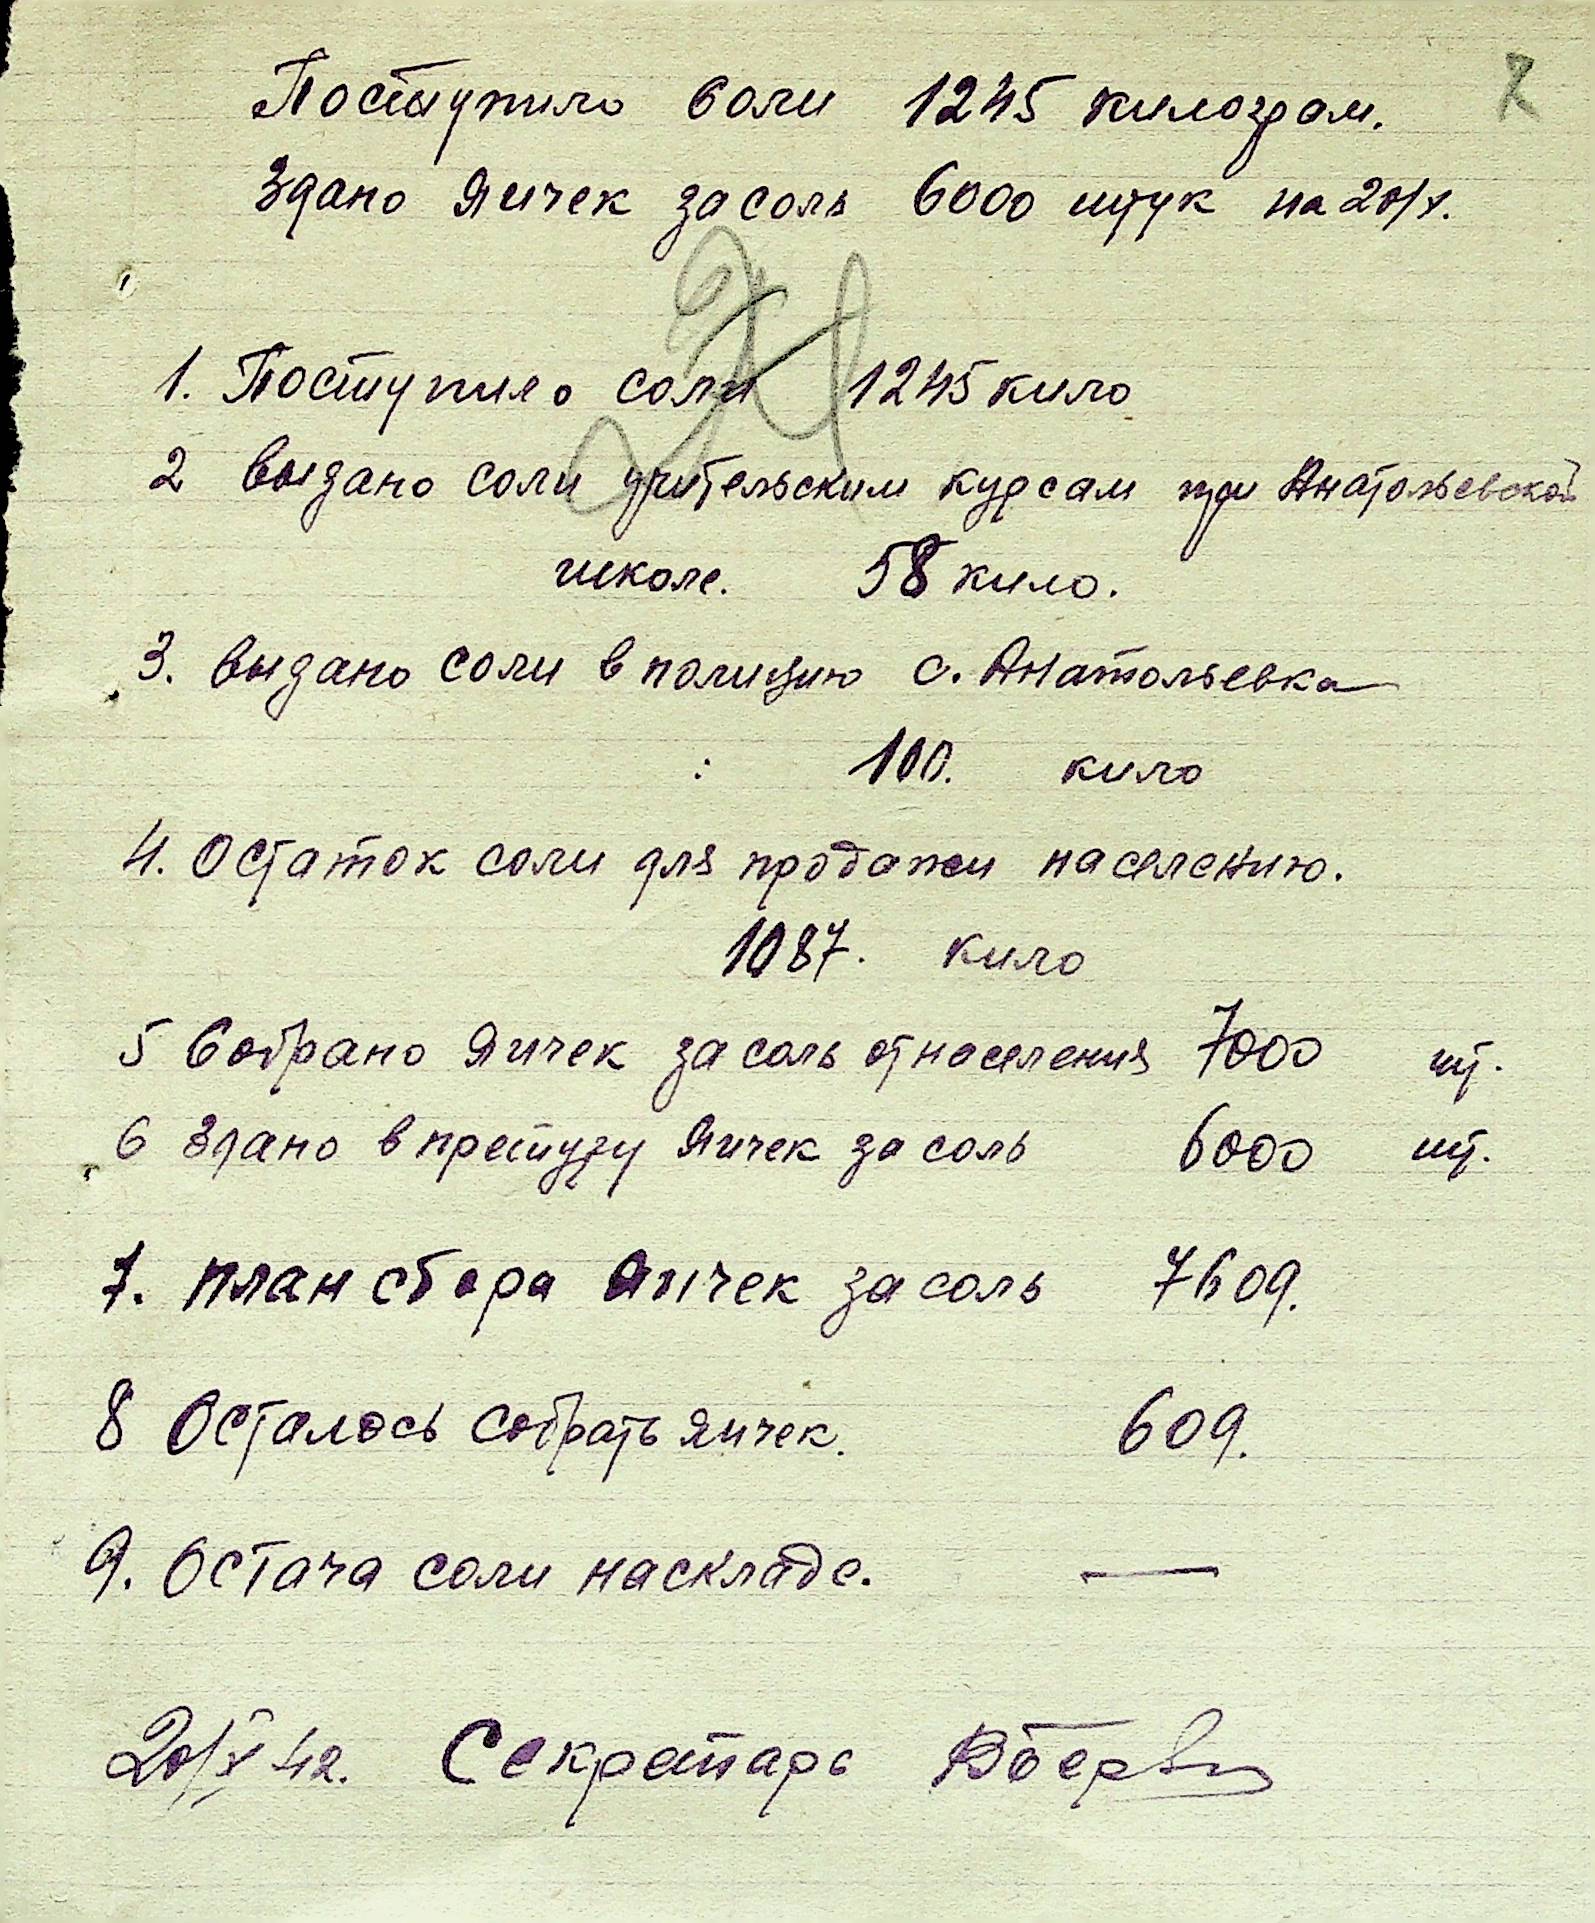 Поступило соли 1245 килограм.
Здано Яичек за соль 6000 штук на 20/X.
1. Поступило соли 1245 кило
2 Выдано соли учительским курсам при Анатольевской
школе. 58 кило.
3. Выдано соли в полицию с. Анатольевка
100. кило
4. Остаток соли для продажи населению.
1087. кило
5 Собрано Яичек за соль от населения 7000 шт.
6 Здано в претуру Яичек за соль 6000 шт.
7. План сбора Яичек за соль 7609.
8 Осталось собрать яичек. 609.
9. Остача соли на складе. —
20/X 42. Секретарь